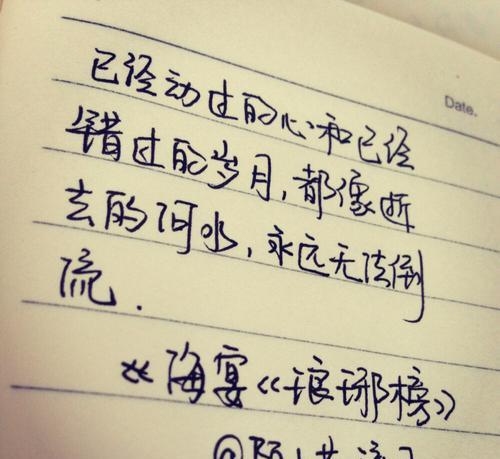 Date.
已经动过的心和已经
错过的岁月，都像逝
去的河水，永远无法倒
流.
海宴《琅琊榜》